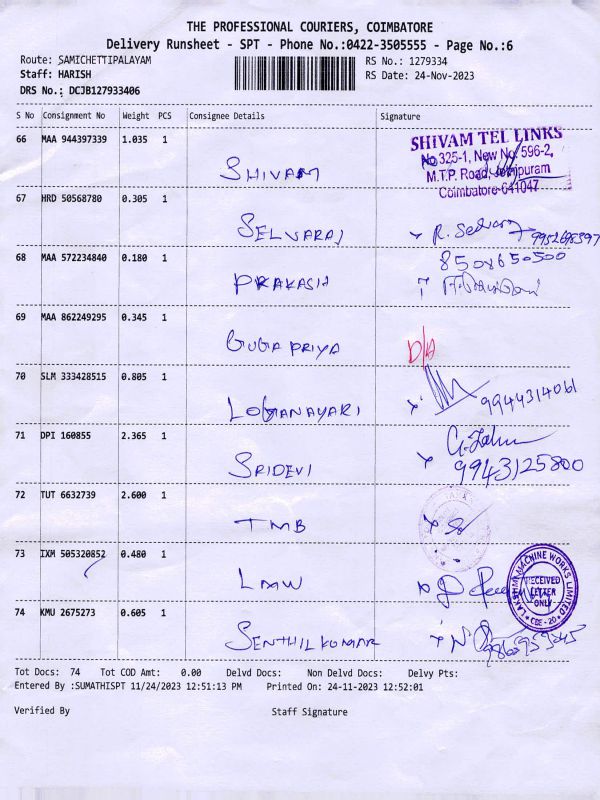 THE PROFESSIONAL COURIERS, COIMBATORE
Delivery Runsheet - SPT - Phone No.:0422-3505555 - Page No.:6
Route: SAMICHETTIPALAYAM
RS No.: 1279334
Staff: HARISH
RS Date: 24-Nov-2023
DRS No.: DCJB127933406
S No Consignment No Weight PCS Consignee Details Signature
66 MAA 944397339 1.035 1
SHIVAM
SHIVAM TEL LINKS
No 325-1, New No: 596-2,
M.T.P. Road,
Coimbatore-641047
67 HRD 50568780 0.305 1
SELVARAJ
68 MAA 572234840 0.180 1
PRAKASH
8508650500
69 MAA 862249295 0.345 1
GUGA PRIYA
D/A
70 SLM 333428515 0.805 1
LOGANAYARI
9944314061
71 DPI 160855 2.365 1
SRIDEVI
9943125800
72 TUT 6632739 2.600 1
TMB
73 IXM 505320852 0.480 1
LMW
LAKSHMI MACHINE WORKS LIMITED
RECEIVED
LETTER
ONLY
CBE - 20
74 KMU 2675273 0.605 1
SENTHIL KUMAR
Tot Docs: 74 Tot COD Amt: 0.00 Delvd Docs: Non Delvd Docs: Delvy Pts:
Entered By :SUMATHISPT 11/24/2023 12:51:13 PM Printed On: 24-11-2023 12:52:01
Verified By Staff Signature